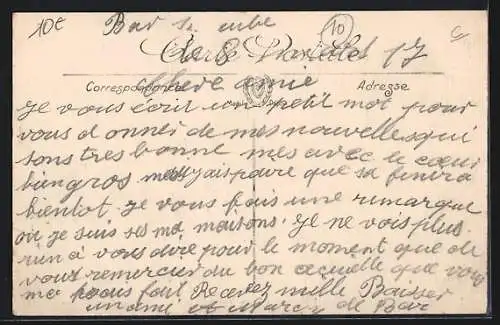 10€ Bar s. aube 10
Carte Postale 17
Chere amie
Correspondance Adresse
Je vous écrit un petit mot pour
vous donner de mes nouvelles qui
sons tres bonne mes avec le cœur
bien gros mes j'ais poire que sa finira
bientot. je vous fais une remarque
ou je suis ses ma maisons. je ne vois plus
rien à vous dire pour le moment que de
vous remercier du bon acceuille que vous
ma fait Recevez mille Baisser
un ami et Marcy de Bar